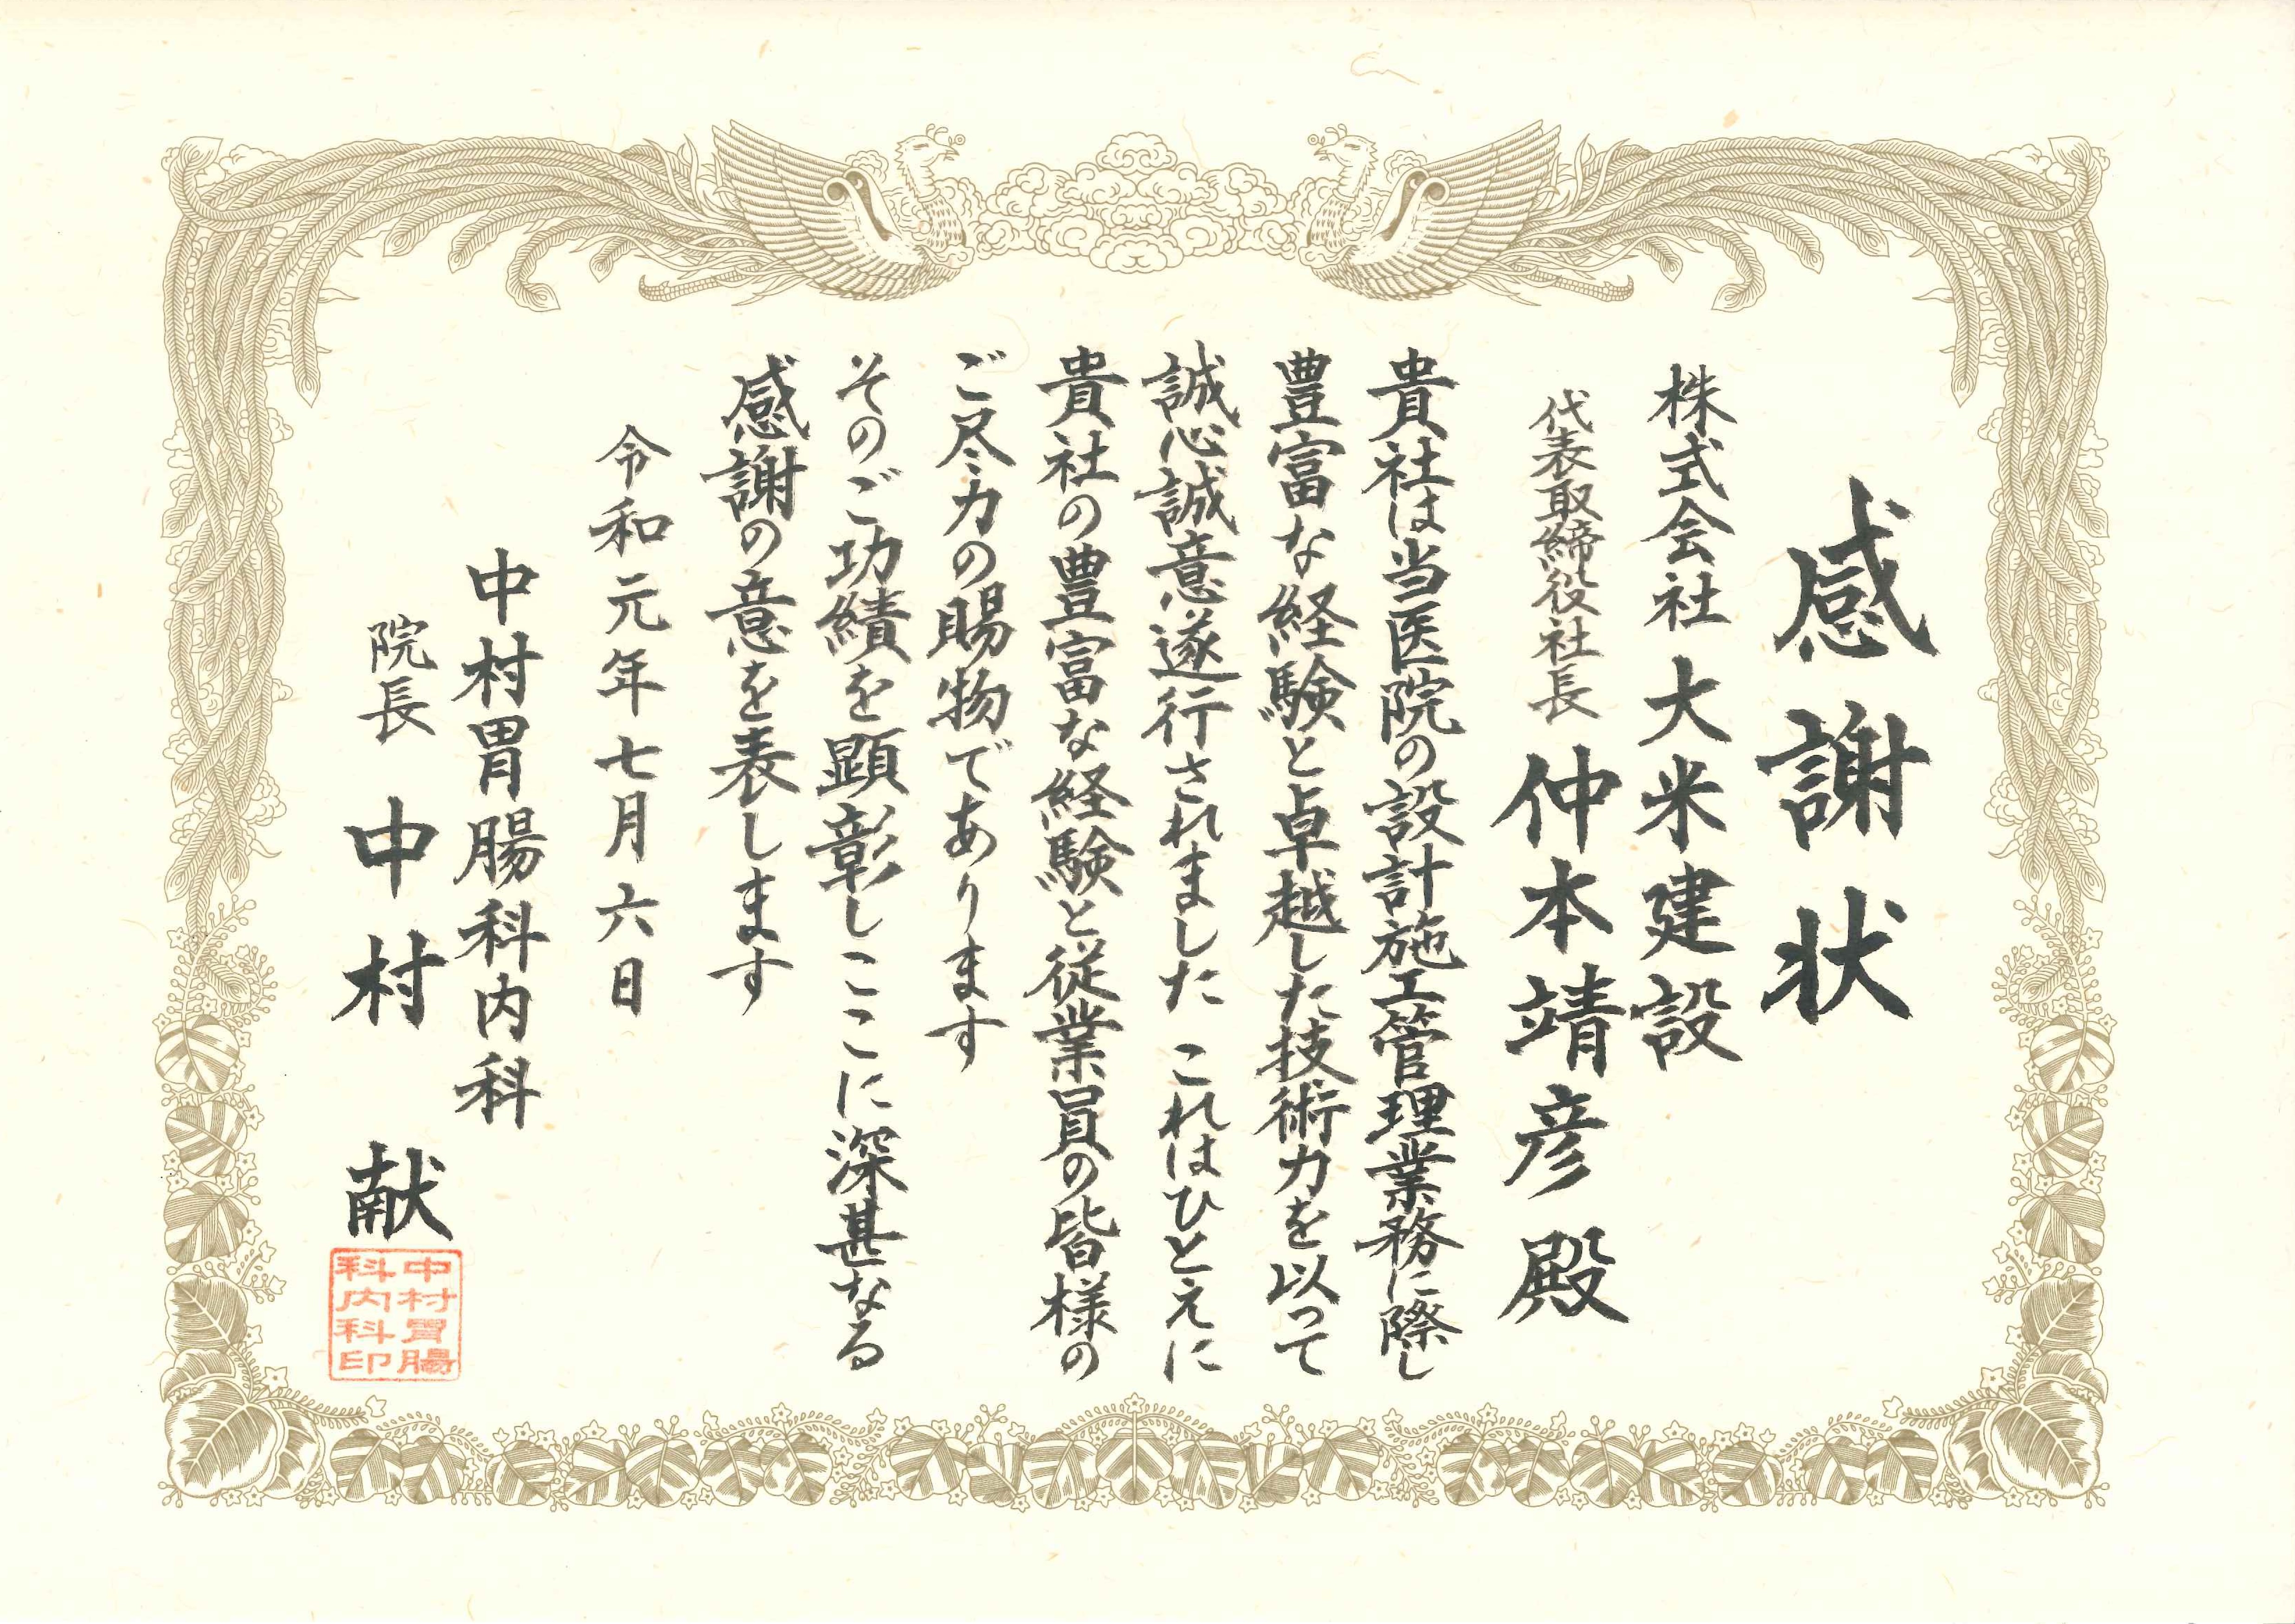 感謝状
株式会社 大米建設
代表取締役社長 仲本靖彦 殿
貴社は当医院の設計施工管理業務に際し
豊富な経験と卓越した技術力を以って
誠心誠意遂行されました これはひとえに
貴社の豊富な経験と従業員の皆様の
ご尽力の賜物であります
そのご功績を顕彰しここに深甚なる
感謝の意を表します
令和元年七月六日
中村胃腸科内科
院長 中村 献
中村胃腸
科内科印